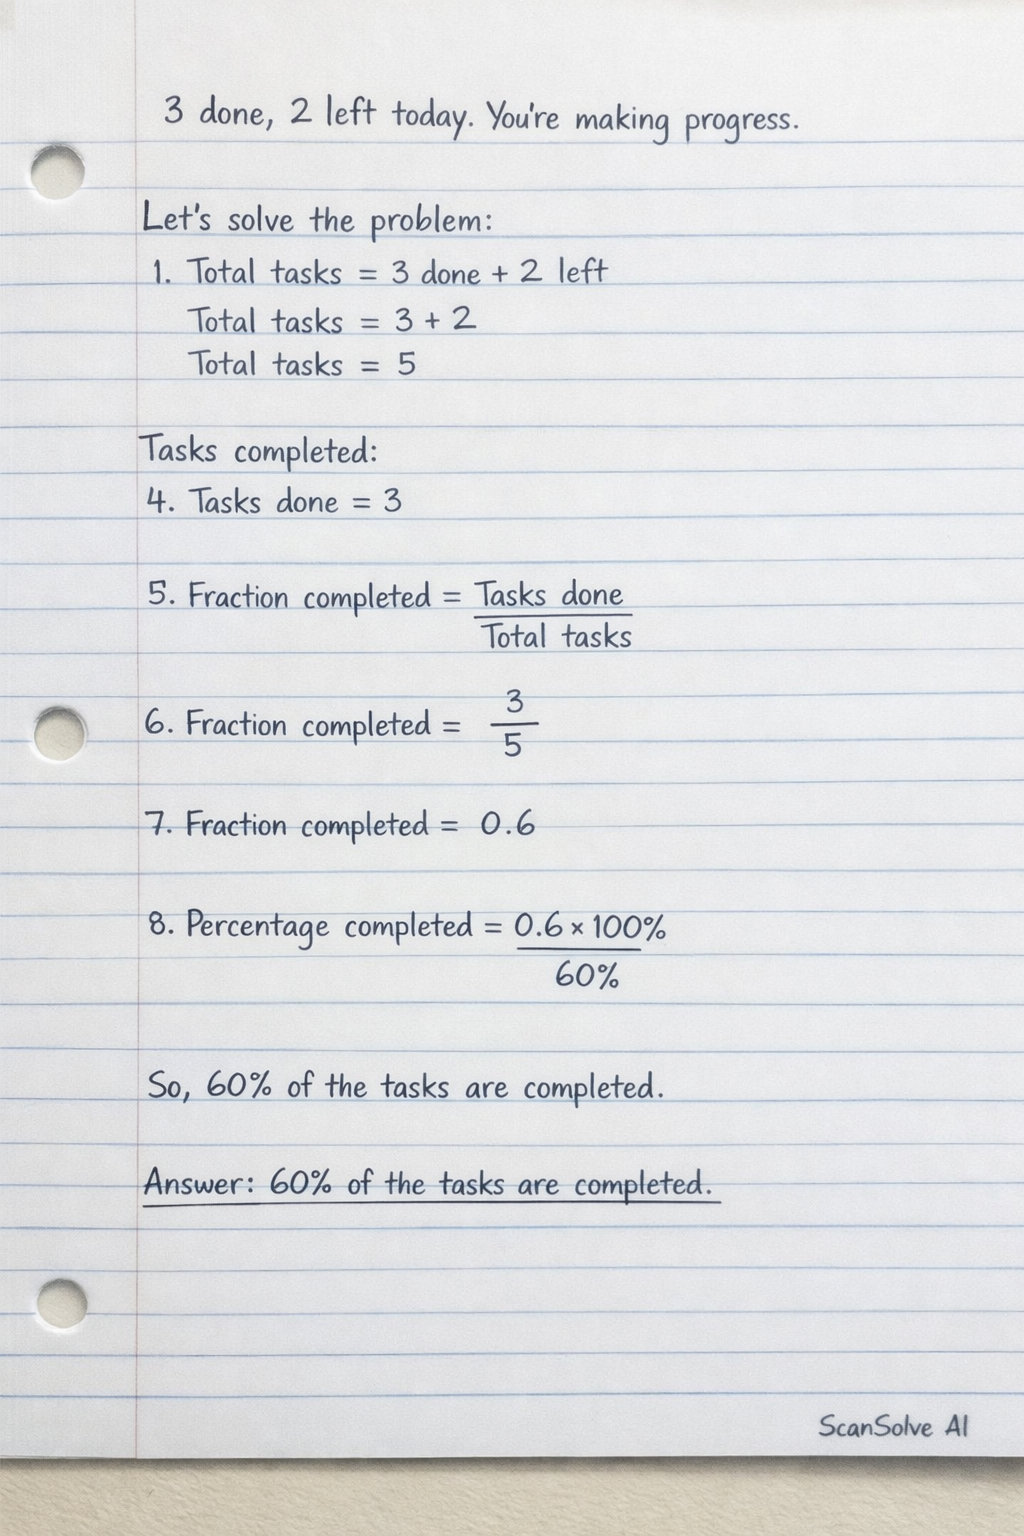 3 done, 2 left today. You're making progress.
Let's solve the problem:
1. Total tasks = 3 done + 2 left
Total tasks = 3 + 2
Total tasks = 5
Tasks completed:
4. Tasks done = 3
5. Fraction completed = Tasks done
Total tasks
6. Fraction completed = 3
5
7. Fraction completed = 0.6
8. Percentage completed = 0.6 × 100%
60%
So, 60% of the tasks are completed.
Answer: 60% of the tasks are completed.
ScanSolve AI